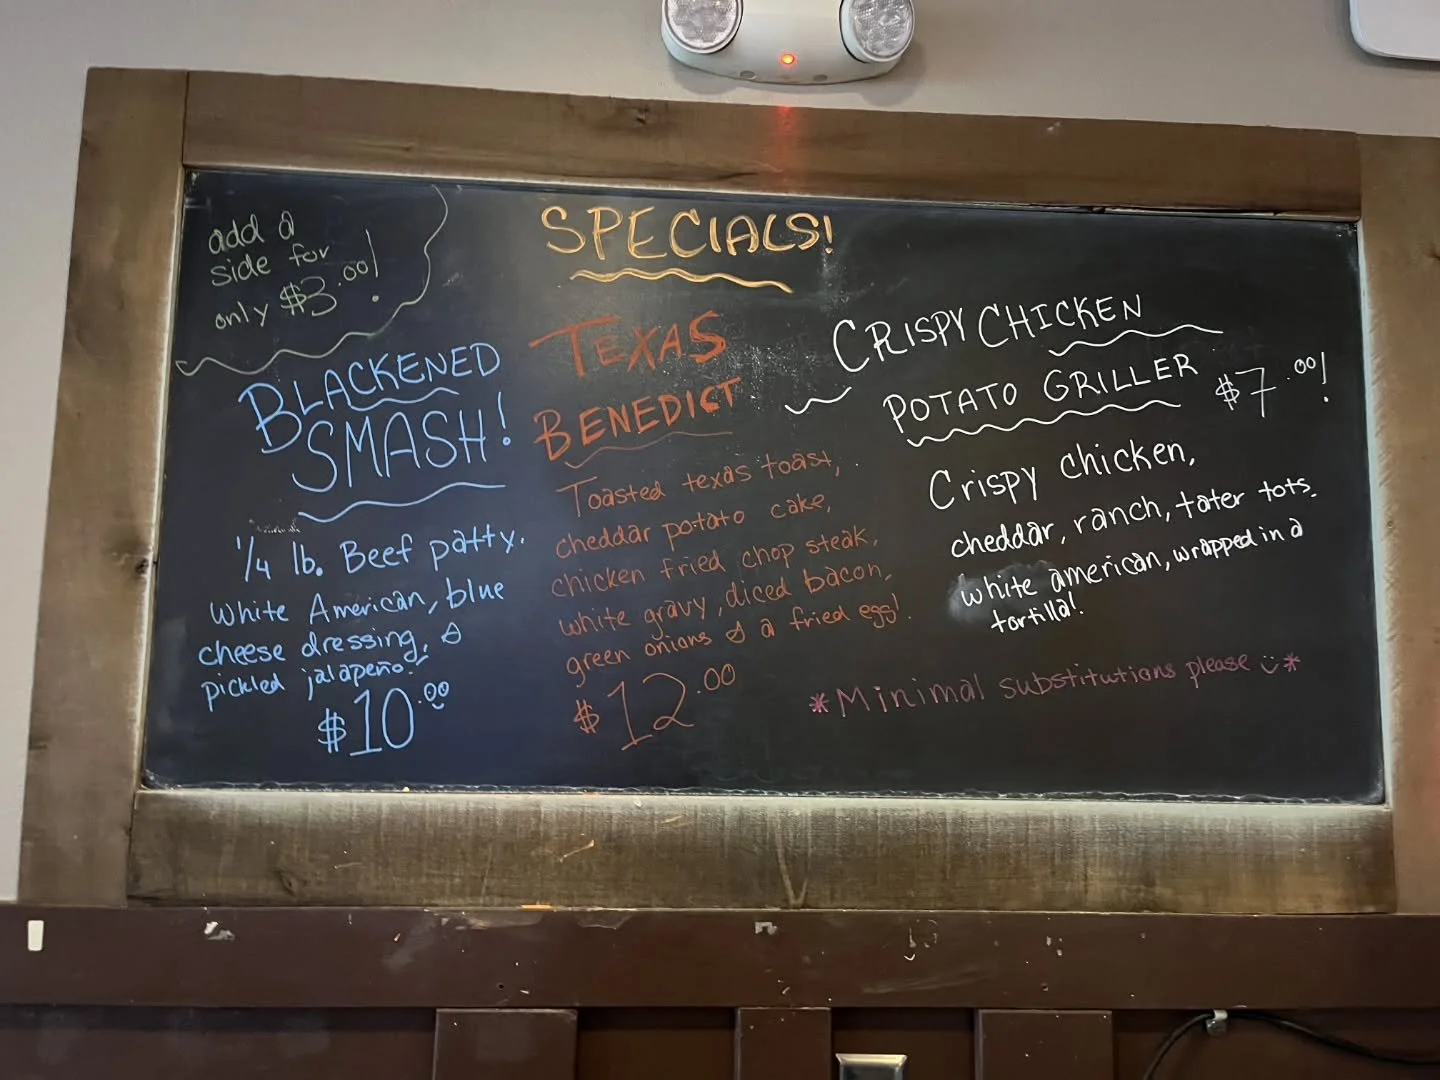 add a
side for
only $3.00!
SPECIALS!
BLACKENED
SMASH!
1/4 lb. Beef patty.
White American, blue
cheese dressing, &
pickled jalapeño!
$10.00
TEXAS
BENEDICT
Toasted texas toast,
cheddar potato cake,
chicken fried chop steak,
white gravy, diced bacon,
green onions & a fried egg!
$12.00
CRISPY CHICKEN
POTATO GRILLER $7.00!
Crispy chicken,
cheddar, ranch, tater tots.
white american, wrapped in a
tortilla!
*Minimal substitutions please ☺*